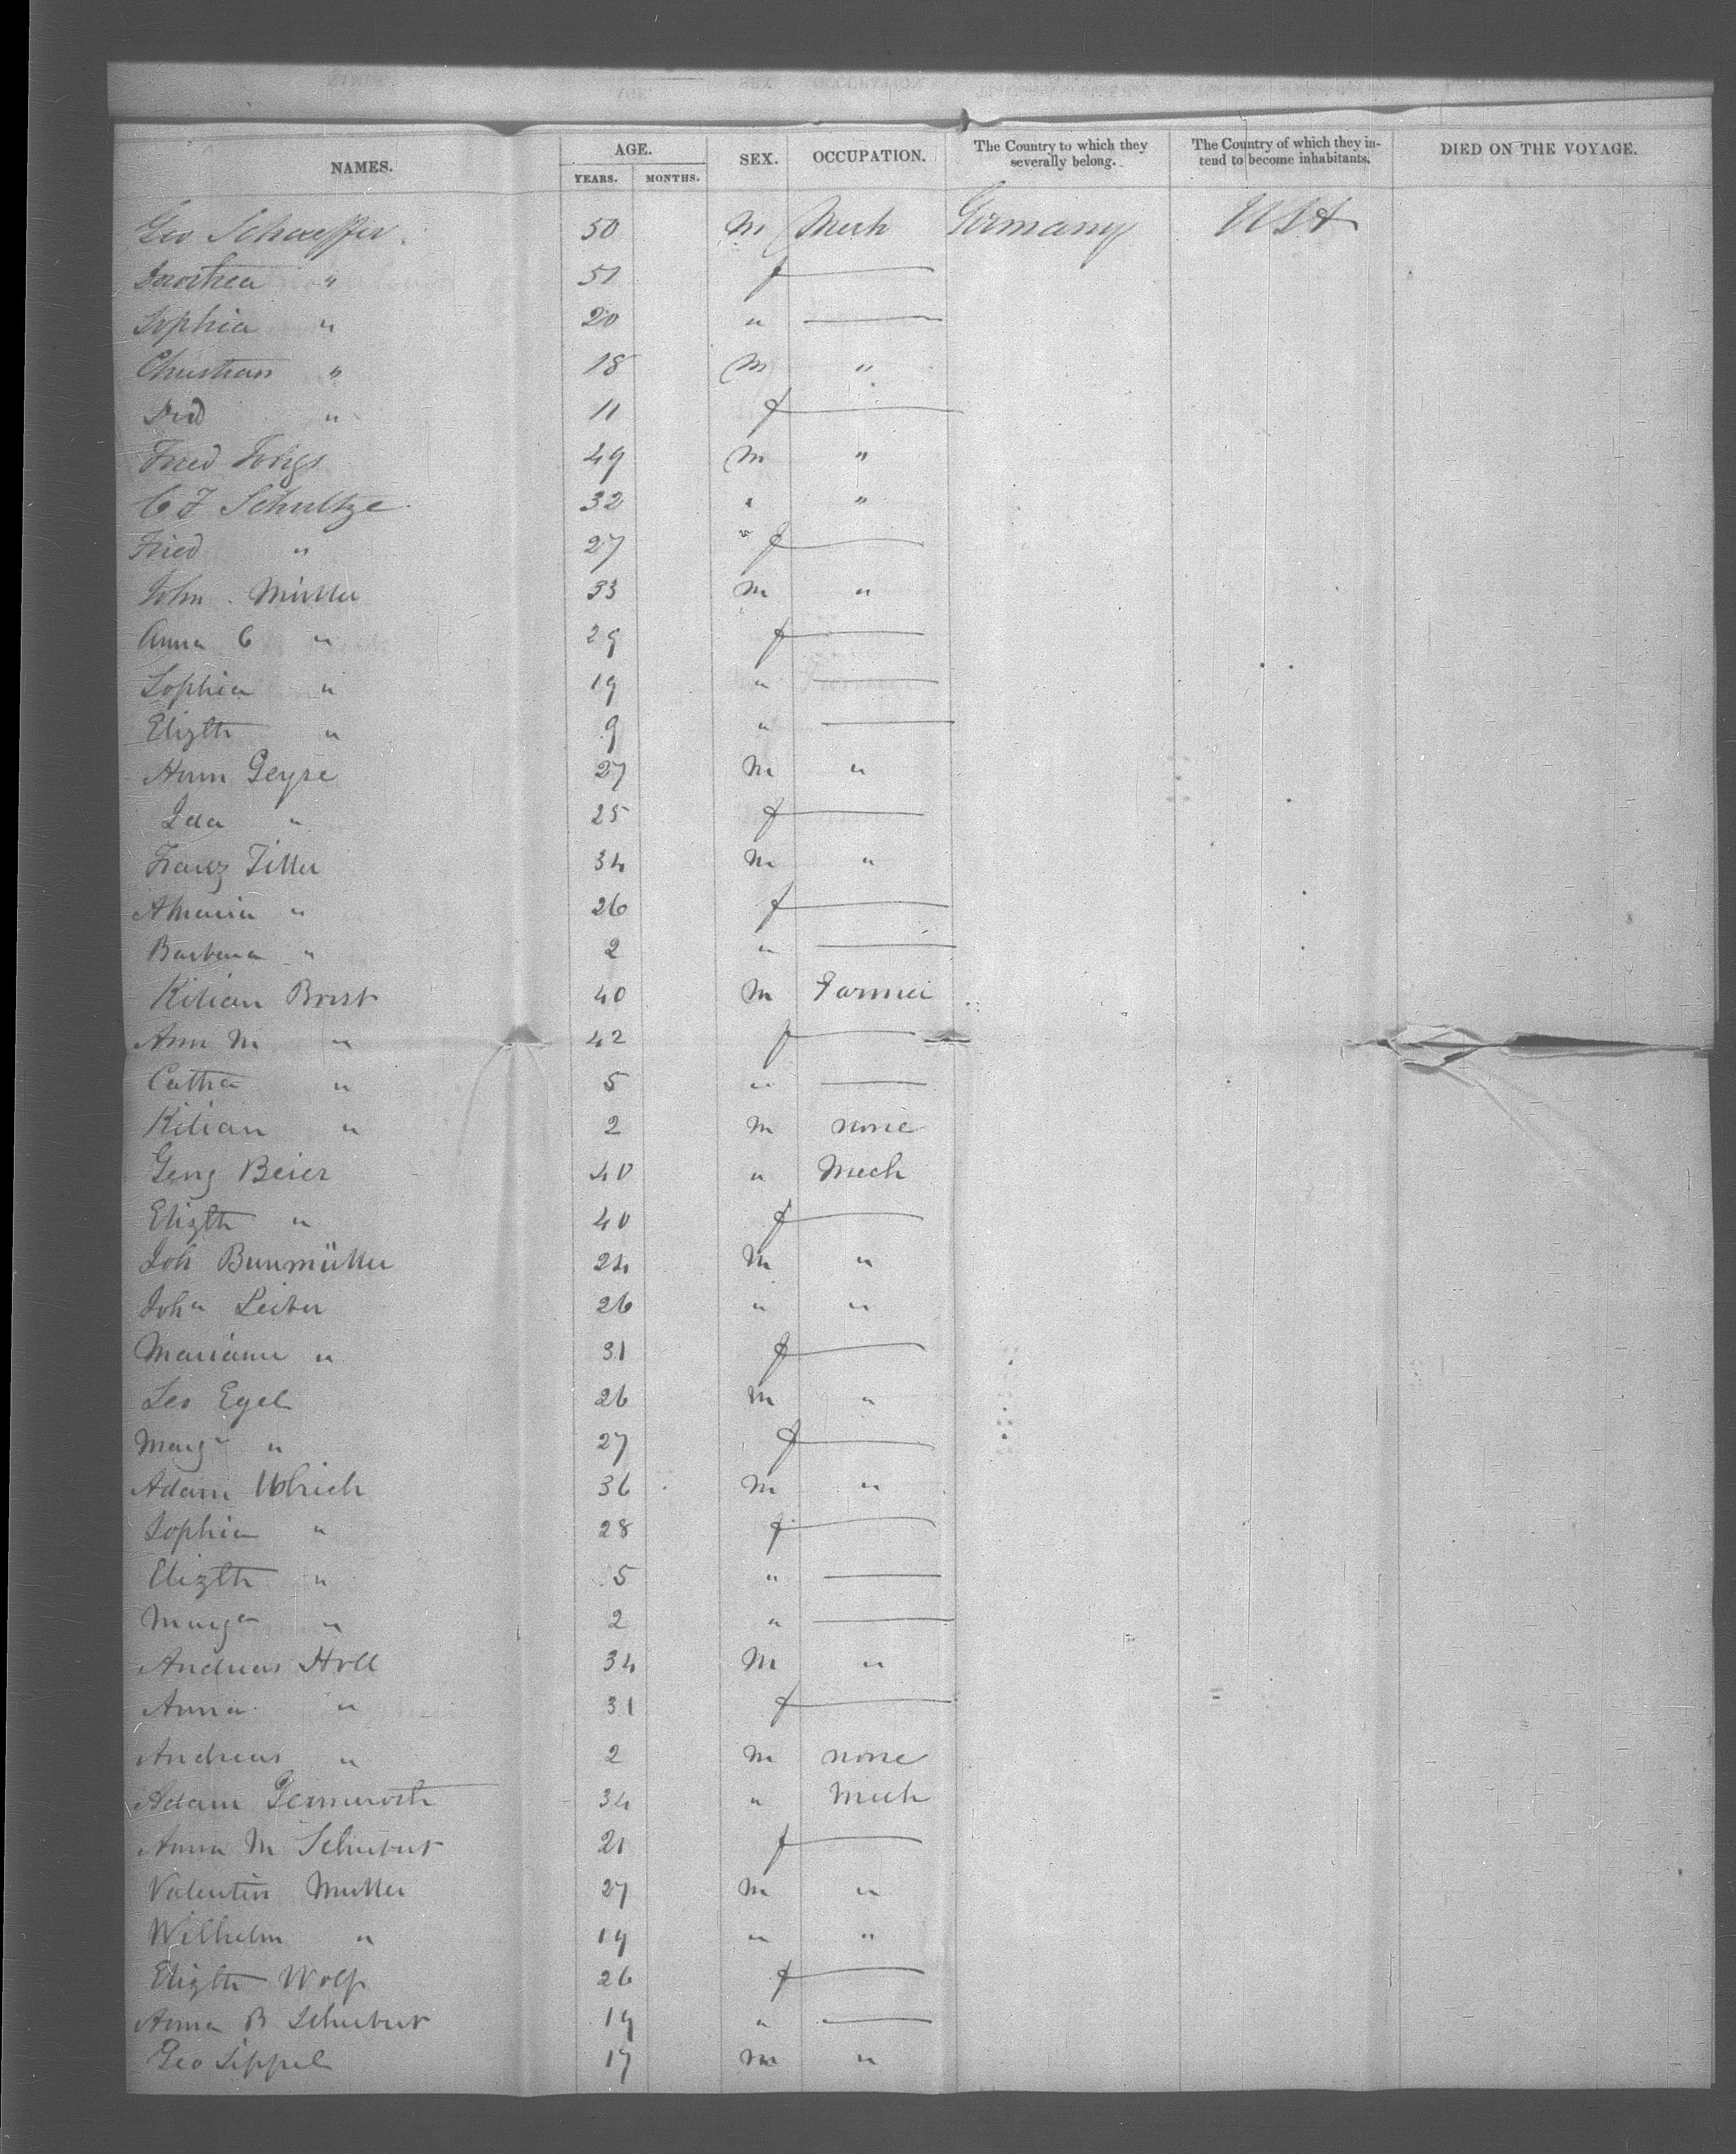 NAMES. AGE. YEARS. MONTHS. SEX. OCCUPATION. The Country to which they severally belong. The Country of which they intend to become inhabitants. DIED ON THE VOYAGE.
Geo Schaeffer. 50 M Mech Germany USA
Dorothea " 51 f
Sophia " 20 "
Christian " 18 M "
" 11 f
Fried 49 M "
C F Schultze 32 " "
Fried " 27 f
John Müller 33 M "
Anna C " 29 f
Sophia " 19 "
Elizth " 9 "
Herm Geyse 27 M "
Ida " 25 f
Franz Tiller 34 M "
AMaria " 26 f
Barbara " 2 "
Kilian Brist 40 M Farmer
Ann M " 42 f
Catha " 5 "
Kilian " 2 M none
Georg Beier 40 " Mech
Elizth " 40 f
Joh Burmüller 24 M "
Joha Leiter 26 " "
Mariann " 31 f
Leo Egel 26 M "
Marga " 27 f
Adam Ulrich 36 M "
Sophia " 28 f
Elizth " 5 "
Marga " 2 "
Andreas Holl 34 M "
Anna " 31 f
Andreas " 2 M none
Adam 34 " Mech
Anna M Schubert 21 f
Valentin Muller 27 M "
Wilhelm " 19 " "
Elizth Wolf 26 f
Anna B Schubert 19 "
Geo Lippel 17 M "